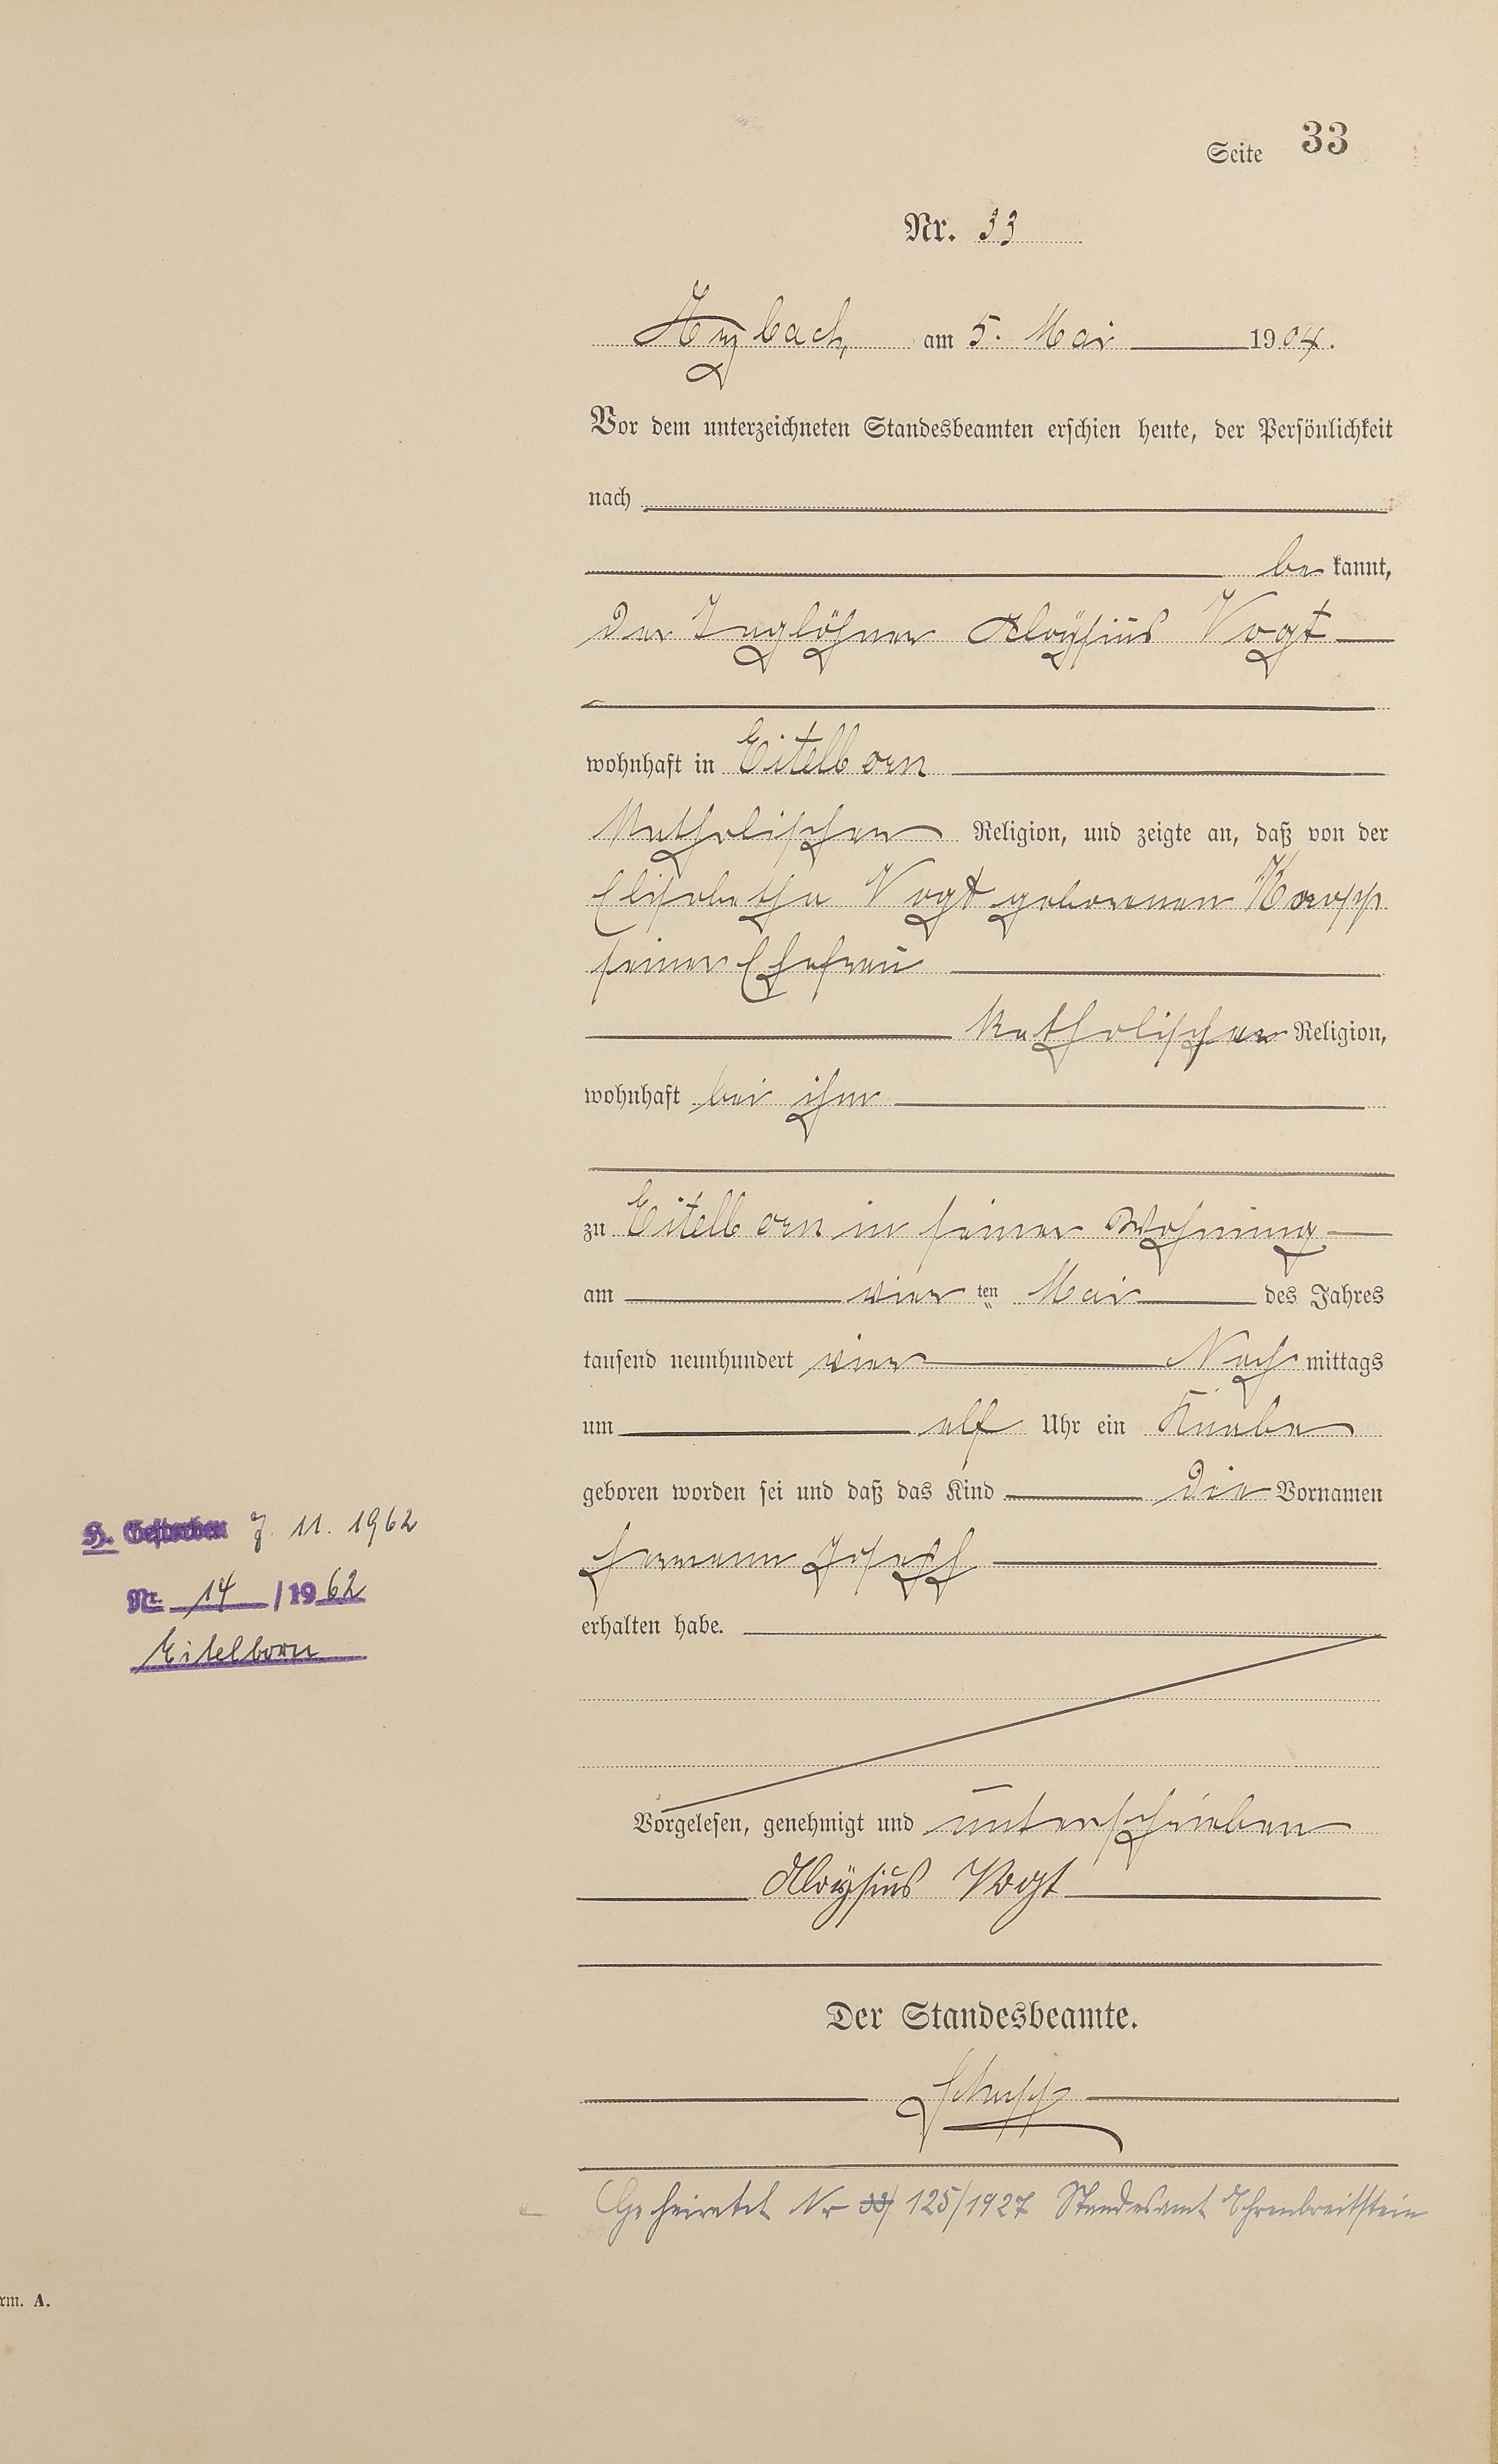 Seite 33
Nr. 33
Arzbach, am 5. Mai 1904.
Vor dem unterzeichneten Standesbeamten erschien heute, der Persönlichkeit
nach
be kannt,
der Taglöhner Aloÿsius Vogt
wohnhaft in Eitelborn
katholischer Religion, und zeigte an, daß von der
Elisabetha Vogt geborenen
seiner Ehefrau
katholischer Religion,
wohnhaft bei ihm
zu Eitelborn in seiner Wohnung
am vier ten Mai des Jahres
tausend neunhundert vier Nach mittags
um elf Uhr ein Knabe
geboren worden sei und daß das Kind die Vornamen
Hermann Joseph
H. Gestorben 7. 11. 1962
Nr. 14 / 1962
Eitelborn
erhalten habe.
Vorgelesen, genehmigt und unterschrieben
Aloÿsius Vogt
Der Standesbeamte.
Schupp
Geheiratet Nr 33/ 125/1927 Standesamt Ehrenbreitstein
rm. A.